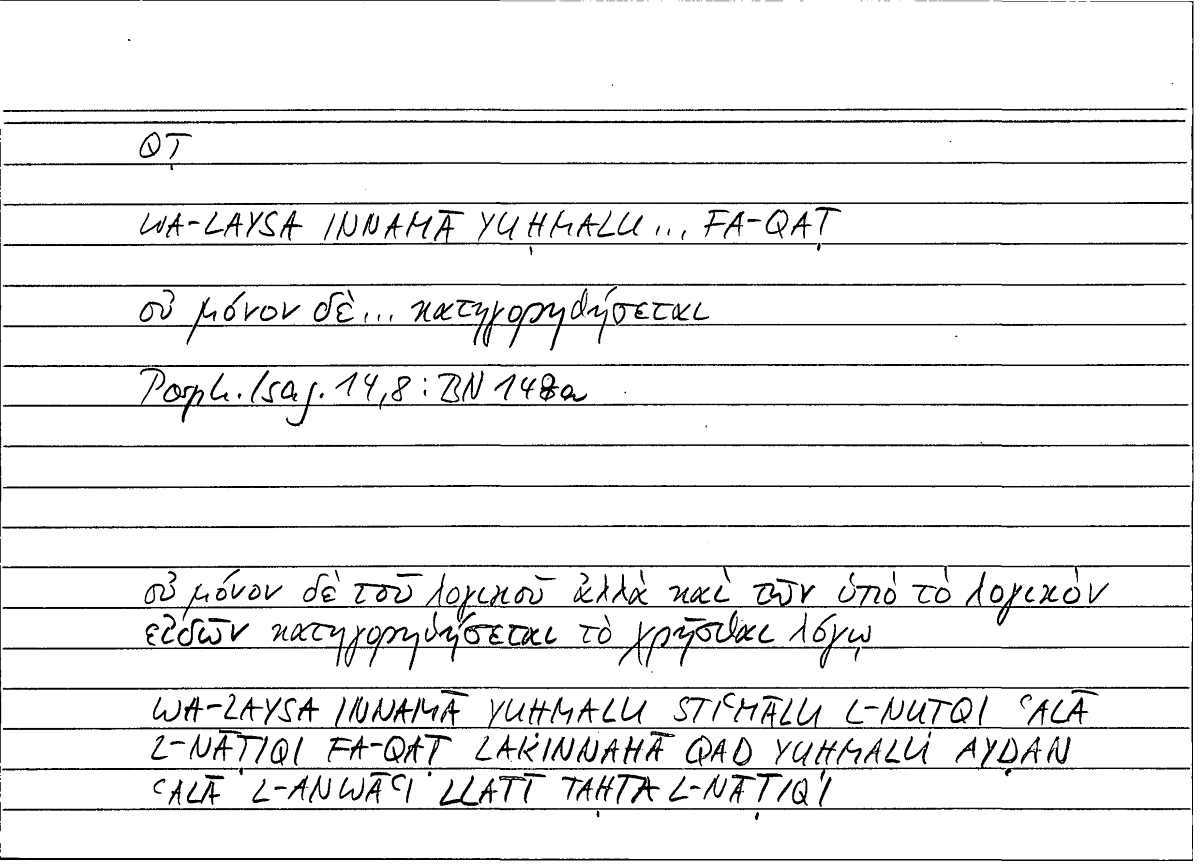 QṬ
WA-LAYSA INNAMĀ YUḤMALU... FA-QAṬ
οὐ μόνον δὲ... κατηγορηθήσεται
Porph. Isag. 14,8: BN 148a
οὐ μόνον δὲ τοῦ λογικοῦ ἀλλὰ καὶ τῶν ὑπὸ τὸ λογικὸν
εἰδῶν κατηγορηθήσεται τὸ χρῆσθαι λόγῳ
WA-LAYSA INNAMĀ YUḤMALU STIʿMĀLU L-NUṬQI ʿALĀ
L-NĀṬIQI FA-QAṬ LAKINNAHĀ QAD YUḤMALU AYḌAN
ʿALĀ L-ANWĀʿI LLATĪ TAḤTA L-NĀṬIQI